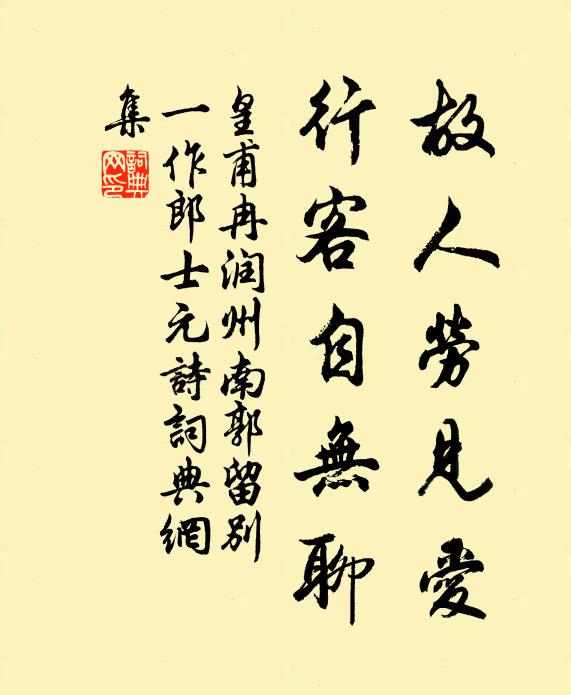 故人勞見愛
行客自無聊
皇甫冉润州南郭留别
一作郎士元詩詞典網
集
詞典網印